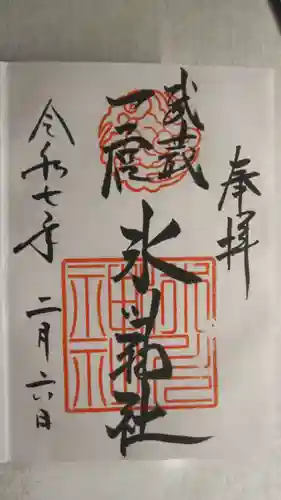 奉拝
武蔵
一宮
氷川神社
令和七年
二月六日
氷川
神社